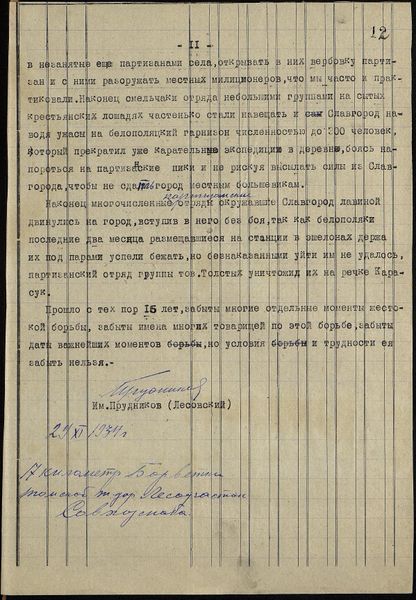 12
- II -
в незанятые еще партизанами села,открывать в них вербовку парти-
зан и с ними разоружать местных милиционеров,что мы часто и прак-
тиковали.Наконец смельчаки отряда небольшими группами на сытых
крестьянских лошадях частенько стали навещать и сам Славгород на-
водя ужасы на белополяцкий гарнизон численностью до 300 человек,
который прекратил уже карательные экспедиции в деревню, боясь на-
пороться на партизанские пики и не рискуя высылать силы из Слав-
города,чтобы не сдать город местным большевикам.
партизанские
Наконец многочисленные отряды окружавшие Славгород лавиной
двинулись на город,вступив в него без боя,так как белополяки
последние два месяца размещавшиеся на станции в эшелонах держа
их под парами успели бежать,но безнаказанными уйти им не удалось,
партизанский отряд группы тов.Толстых уничтожил их на речке Кара-
сук.
Прошло с тех пор 15 лет,забыты многие отдельные моменты жесто-
кой борьбы, забыты имена многих товарищей по этой борьбе,забыты
даты важнейших моментов борьбы,но условия борьбы и трудности ея
забыть нельзя.-
Им.Прудников (Лесовский)
29 XI 1934 г
17 километр
Томской ж дор